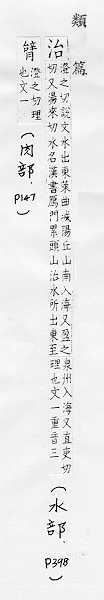 類篇
治 澄之切說文水出東萊曲成陽丘山南入海又盈之
切又湯來切水名漢書鴈門累頭山治水所出東至泉州入海又直吏切理也文一重音三
(水部.P398)
䏄 澄之切理
也文一
(肉部.P147)